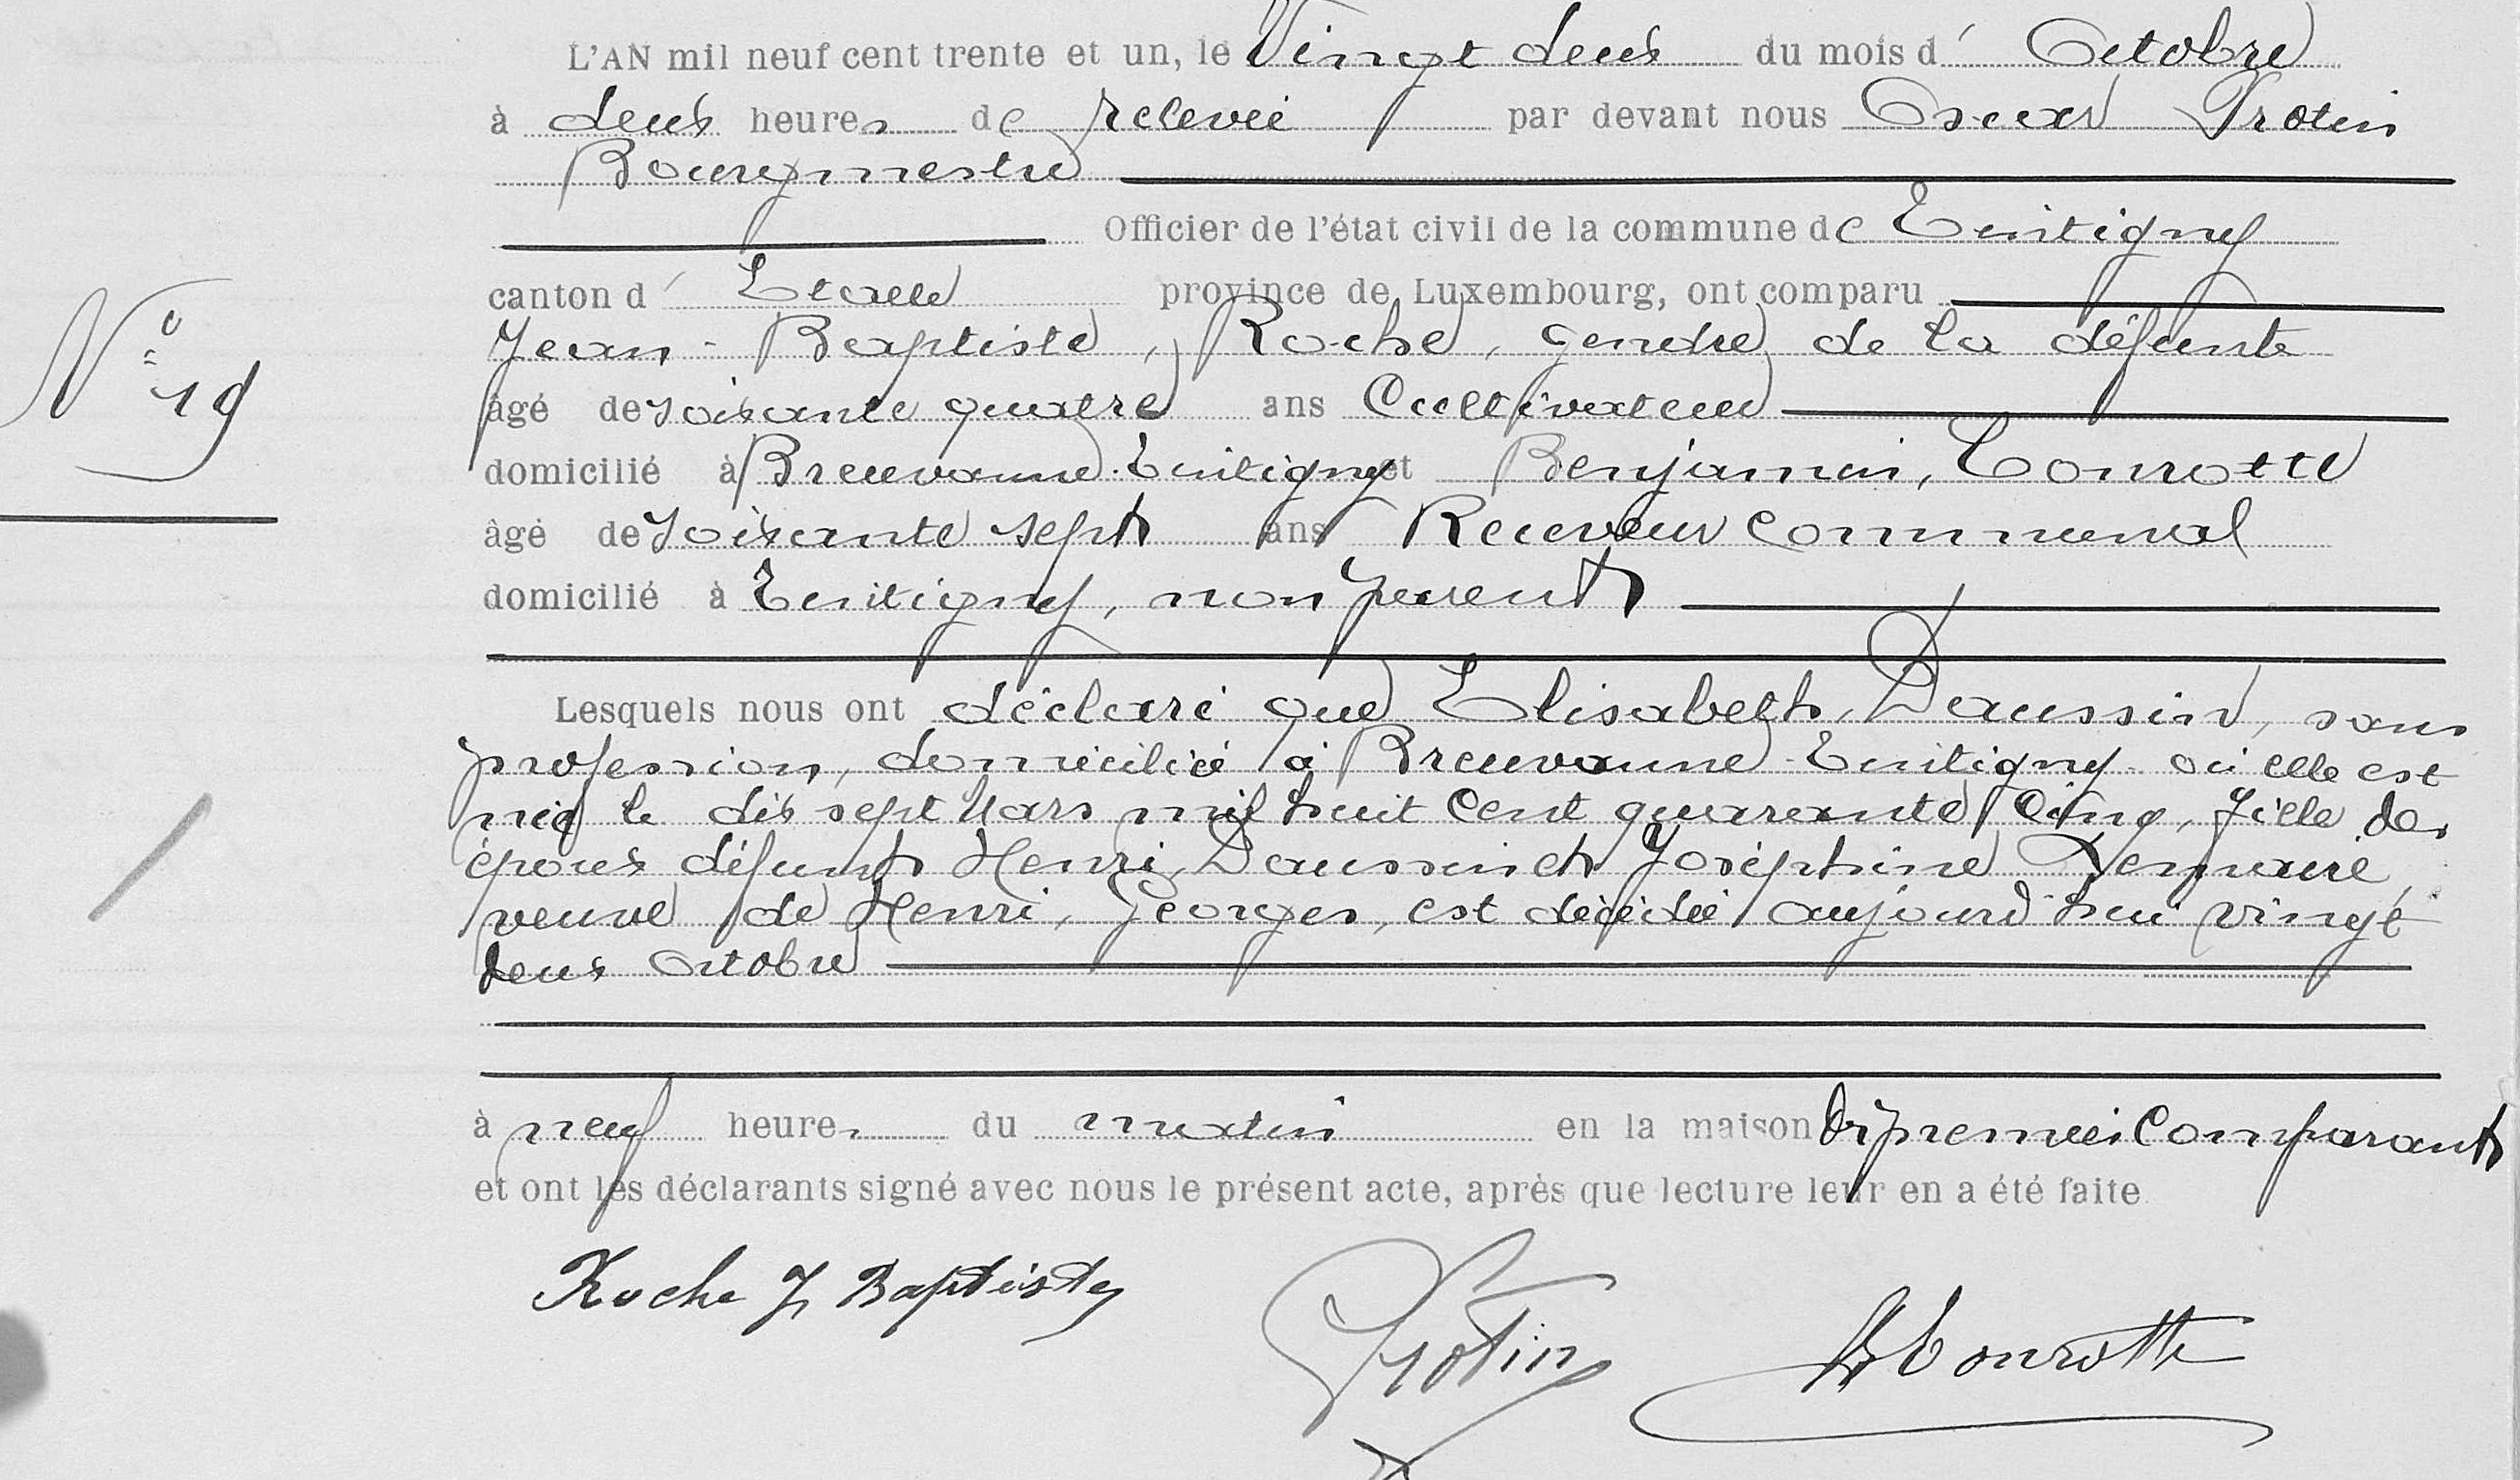 L'AN mil neuf cent trente et un, le Vingt deux du mois d' Octobre
à deux heures de relevée par devant nous Oscar Protin
Bourgmestre
Officier de l'état civil de la commune de Tintigny
canton d' Etalle province de Luxembourg, ont comparu
Jean-Baptiste, Roche, gendre de la défunte
âgé de soixante quatre ans Cultivateur
N° 19
domicilié à Breuvanne-Tintigny et Benjamin, Conrotte
âgé de soixante sept ans Receveur communal
domicilié à Tintigny, non parent
Lesquels nous ont déclaré que Elisabeth, Daussin, sans
profession, domiciliée à Breuvanne-Tintigny où elle est
née le dix sept Mars mil huit cent quarante cinq, fille des
époux défunts Henri, Daussin et Joséphine
veuve de Henri, Georges, est décédée aujourd'hui vingt
deux octobre
à neuf heures du matin en la maison du premier Comparant
et ont les déclarants signé avec nous le présent acte, après que lecture leur en a été faite
Roche J Baptiste
Protin
B Conrotte